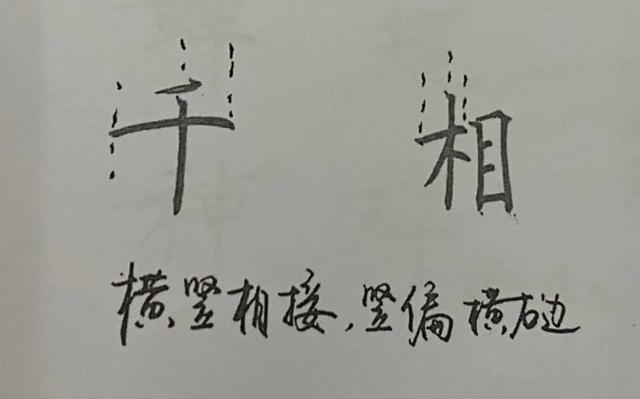 千 相
横竖相接，竖偏横右边